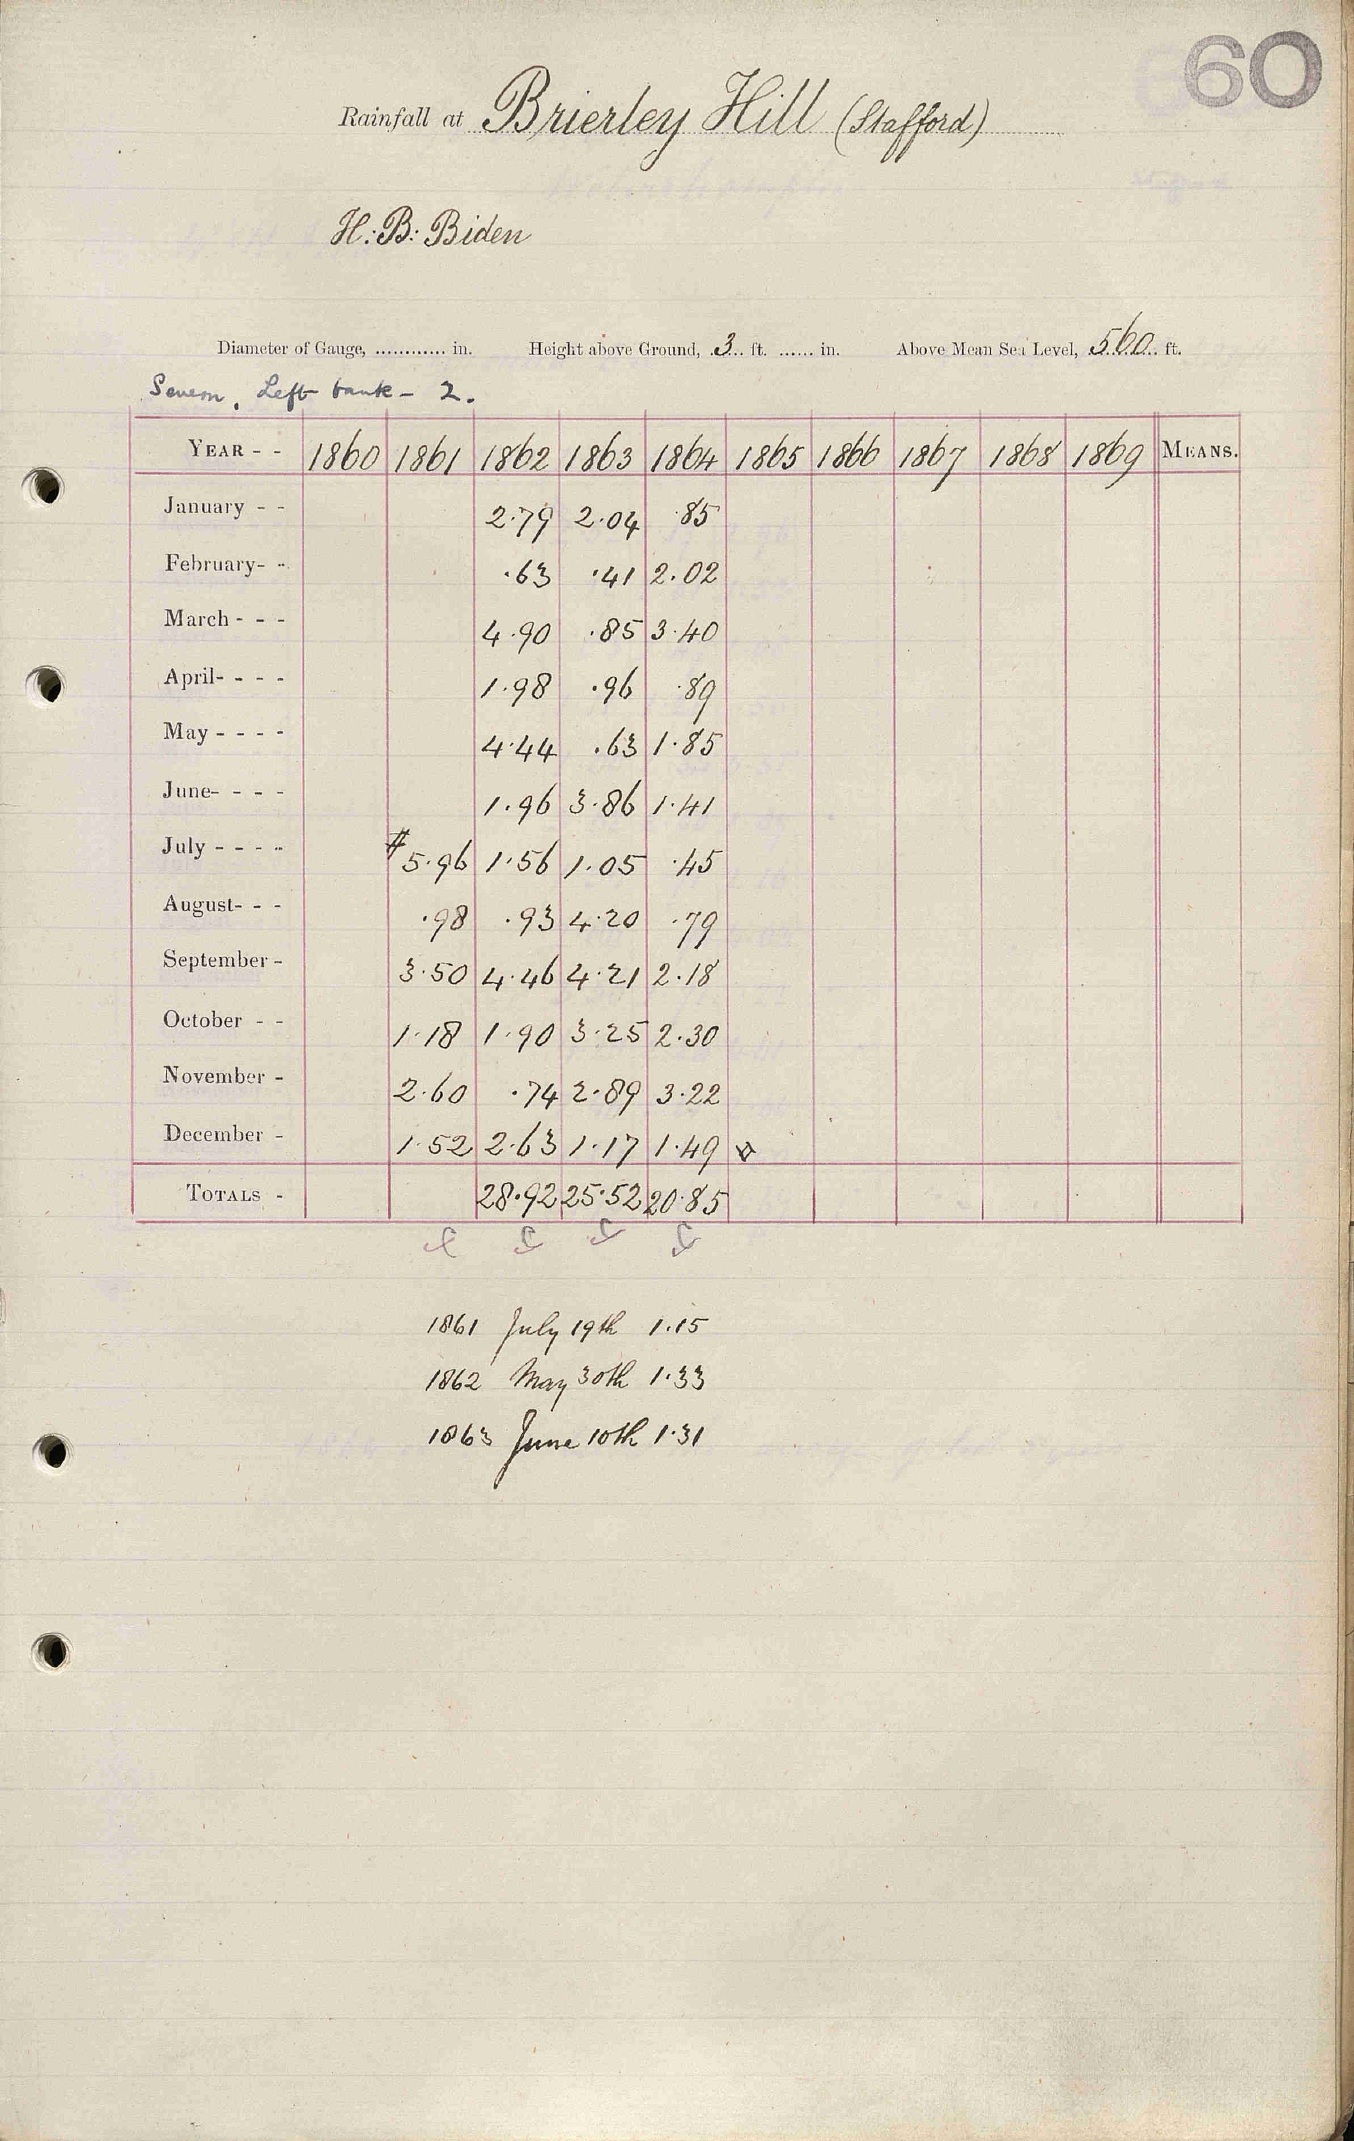 60
Rainfall at Brierley Hill (Stafford)
H.: B: Biden
Diameter of Gauge, ............ in. Height above Ground, 3 ft. ...... in. Above Mean Sea Level, 560 ft.
Severn, Left bank - 2.
YEAR - - 1860 1861 1862 1863 1864 1865 1866 1867 1868 1869 MEANS.
January - - 2.79 2.04 .85
February- - .63 .41 2.02
March - - - 4.90 .85 3.40
April- - - - 1.98 .96 .89
May - - - - 4.44 .63 1.85
June- - - - 1.96 3.86 1.41
July - - - - # 5.96 1.56 1.05 .45
August- - - .98 .93 4.20 .79
September - 3.50 4.46 4.21 2.18
October - - 1.18 1.90 3.25 2.30
November - 2.60 .74 2.89 3.22
December - 1.52 2.63 1.17 1.49
TOTALS - 28.92 25.52 20.85
1861 July 19th 1.15
1862 May 30th 1.33
1863 June 10th 1.31